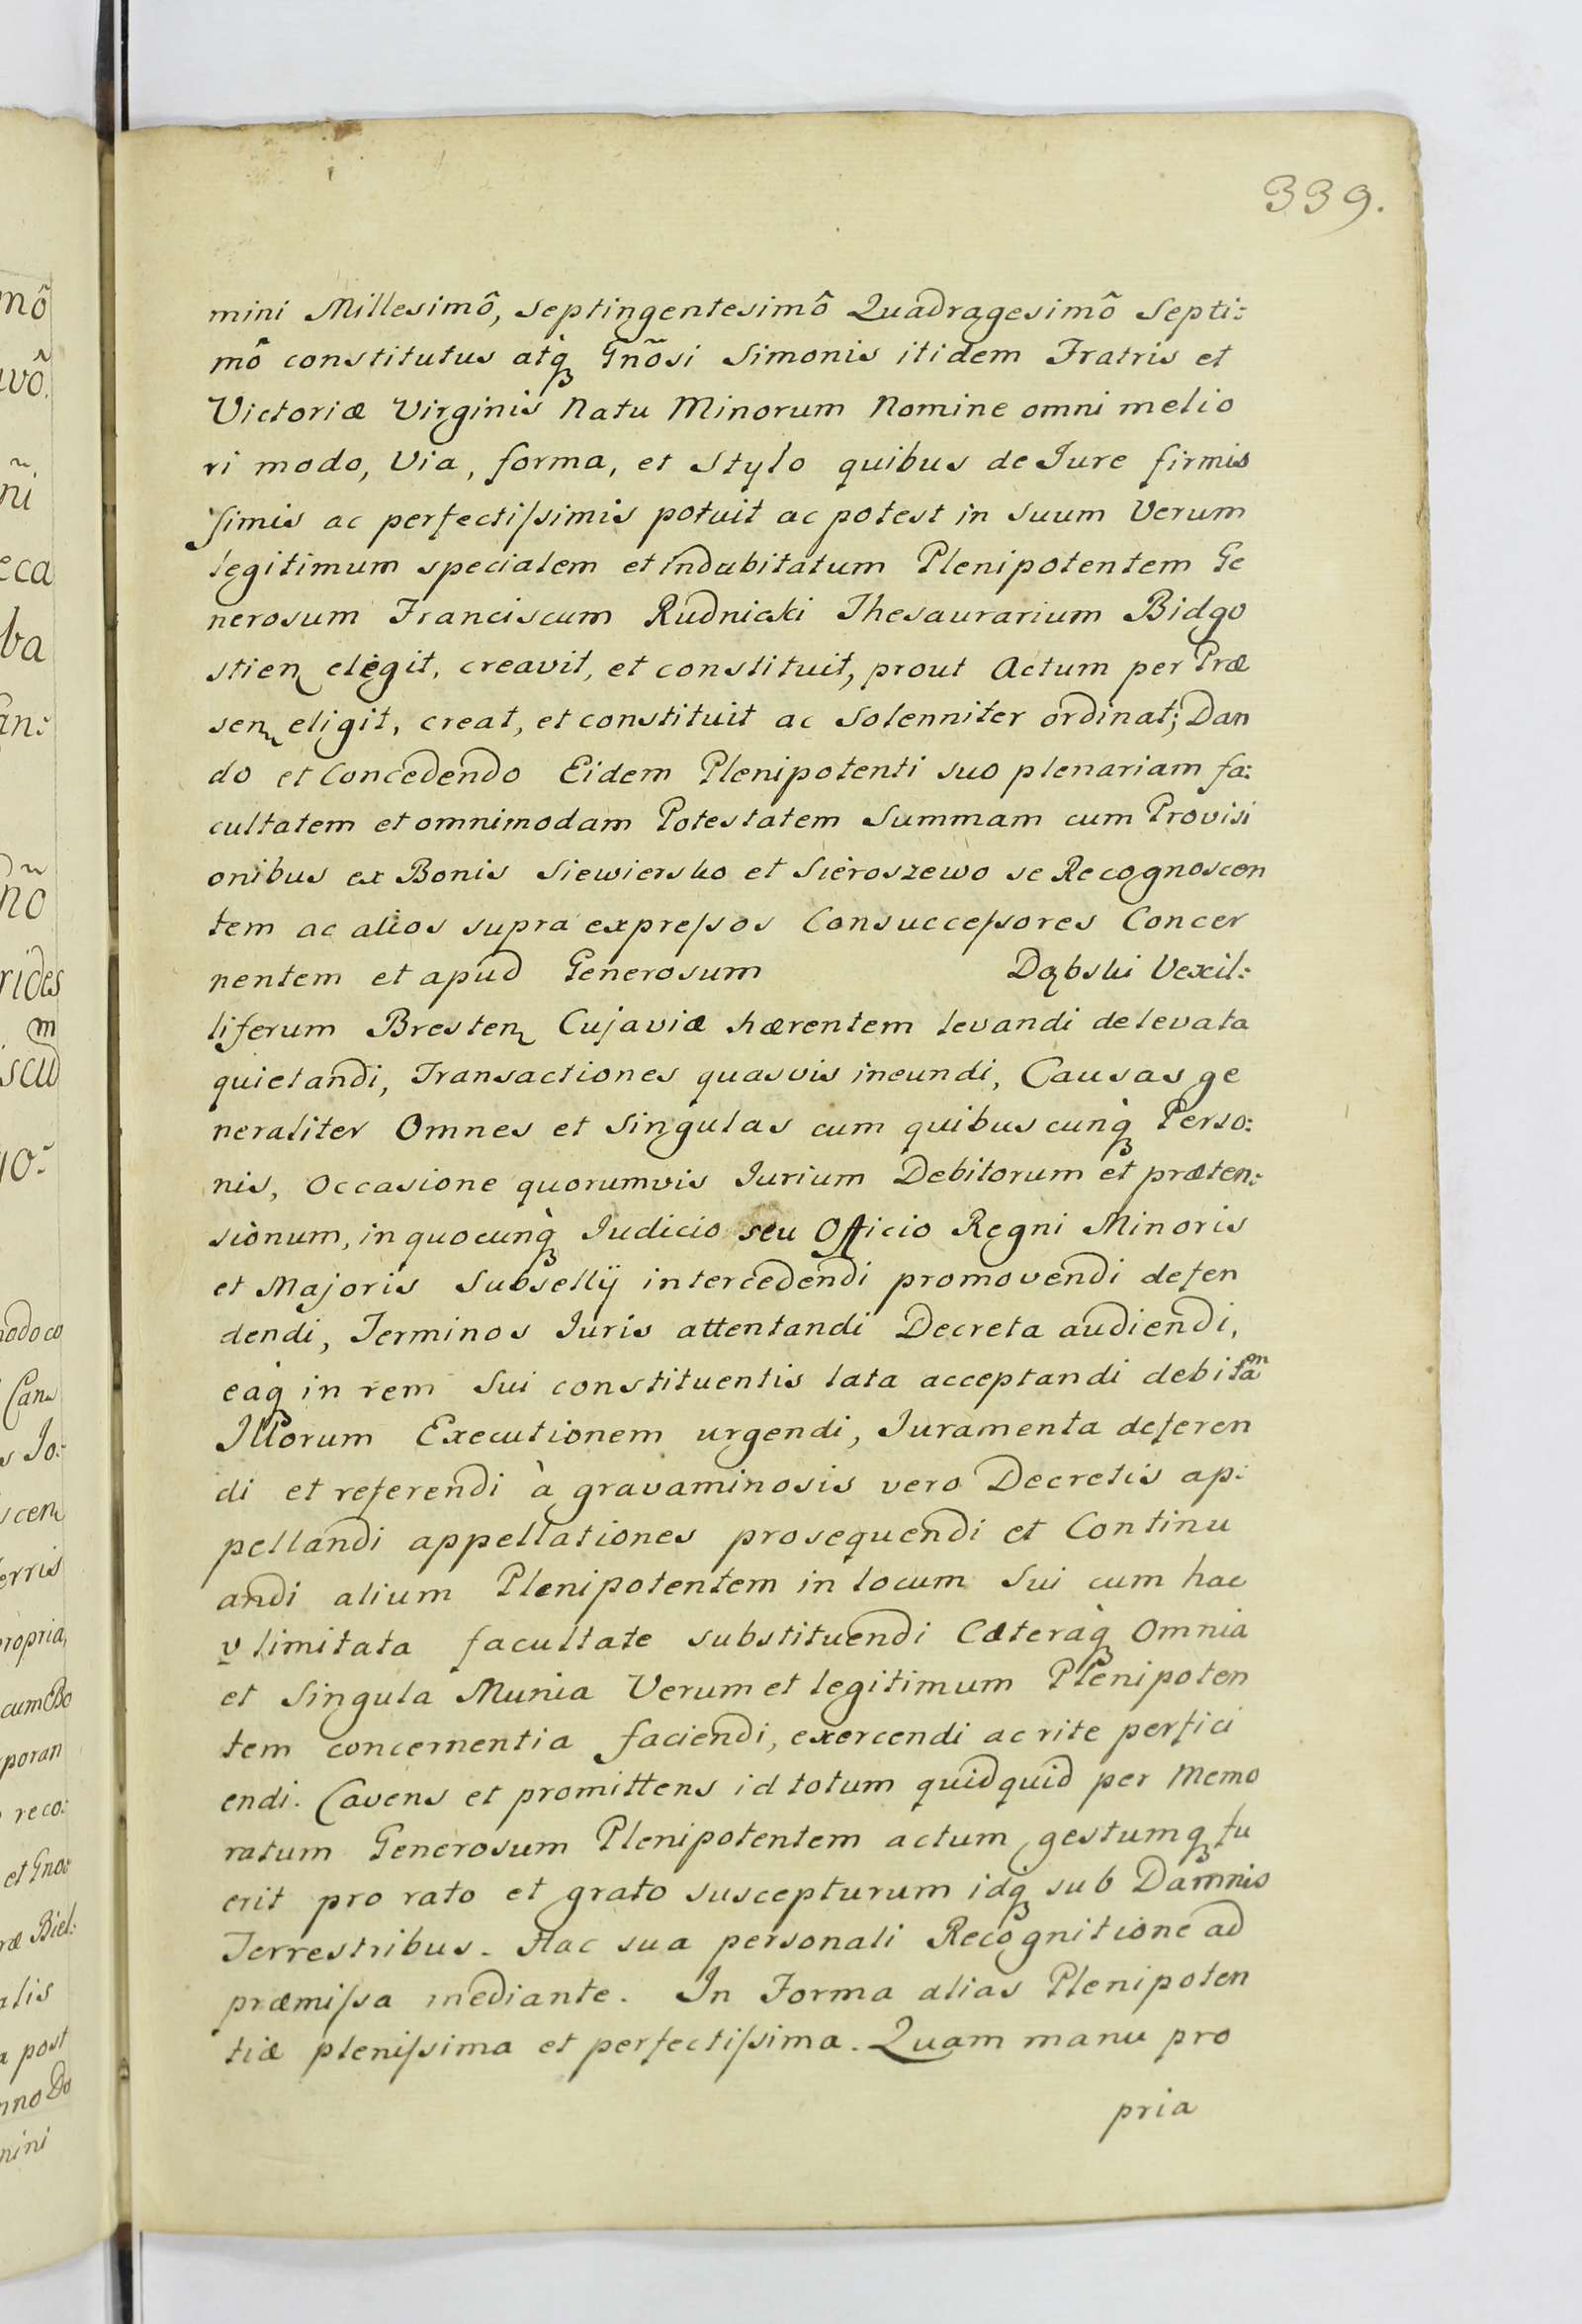 339.
mini Millesimô, septingentesimô Quadragesimô Septi:
mô constitutus atq̀ Gnõsi Simonis itidem Fratris et
Victoriæ Virginis Natu Minorum Nomine omni melio
ri modo, Via, forma, et Stylo quibus de Jure firmis
simis ac perfectissimis potuit ac potest in suum Verum
legitimum specialem et indubitatum Plenipotentem Ge
nerosum Franciscum Rudnicki Thesaurarium Bidgo
stien elègit, creavit, et constituit, prout Actum per Præ
sen eligit, creat, et constituit ac Solenniter ordinat; Dan
do et Concedendo Eidem Plenipotenti suo plenariam fa:
cultatem et omnimodam Potestatem Summam cum Provisi
onibus ex Bonis Siewiersko et Sieroszewo se Recognoscen
tem ac alios supra expressos Consuccessores Concer
nentem et apud Generosum Dąbski Vexil:
liferum Bresten Cujaviæ hærentem levandi de levata
quietandi, Transactiones quasvis ineundi, Causas ge
neraliter Omnes et Singulas cum quibuscunq̀ Perso:
nis, Occasione quorumvis Jurium Debitorum et præten:
sionum, in quocunq̀ Judicio seu Officio Regni Minoris
et Majoris Subsellÿ intercedendi promovendi defen
dendi, Terminos Juris attentandi Decreta audiendi,
eaq̀ in rem Sui constituentis lata acceptandi debitam
Illorum Executionem urgendi, Juramenta deferen
di et referendi à gravaminosis vero Decretis ap:
pellandi appellationes prosequendi et Continu
andi alium Plenipotentem in locum Sui cum hac
v limitata facultate substituendi Cæteraq̀ Omnia
et Singula Munia Verum et legitimum Plenipoten
tem concernentia faciendi, exercendi ac rite perfici
endi. Cavens et promittens id totum quidquid per Memo
ratum Generosum Plenipotentem actum gestumq fu
erit pro rato et grato suscepturum idq̀ sub Damnis
Terrestribus. Hac sua personali Recognitione ad
præmissa mediante. In Forma alias Plenipoten
tiæ plenissima et perfectissima. Quam manu pro
pria